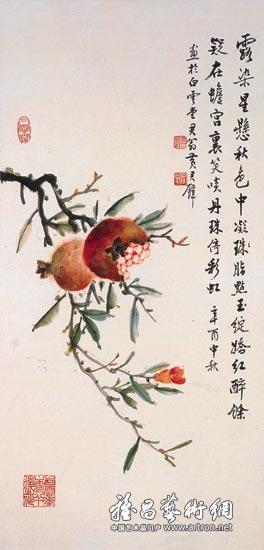 露染星懸秋色中凝珠脂點玉綻嬌紅醉餘
疑在蟾宮裏笑啖丹珠倚彩虹 辛酉中秋
畫於白雲堂 君翁黃君璧
雅昌藝術網
中国艺术品门户 www.artron.net